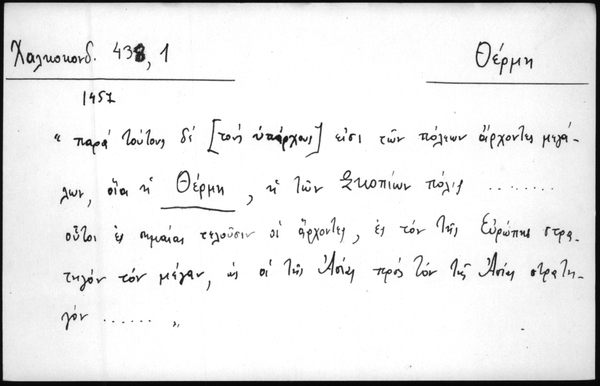 Χαλκοκονδ. 438, 1
Θέρμη
1457
" παρά τούτους δέ [τούς ὑπάρχους] εἰσι τῶν πόλεων ἄρχοντες μεγά-
λων, οἵα ἡ Θέρμη, ἡ τῶν Σκοπίων πόλις ........
οὗτοι ἐς σημαίας τελοῦσιν οἱ ἄρχοντες, ἐς τόν τῆς Εὐρώπης στρα-
τηγόν τόν μέγαν, ὡς οἱ τῆς Ἀσίας πρός τόν τῆς Ἀσίας στρατη-
γόν ...... "